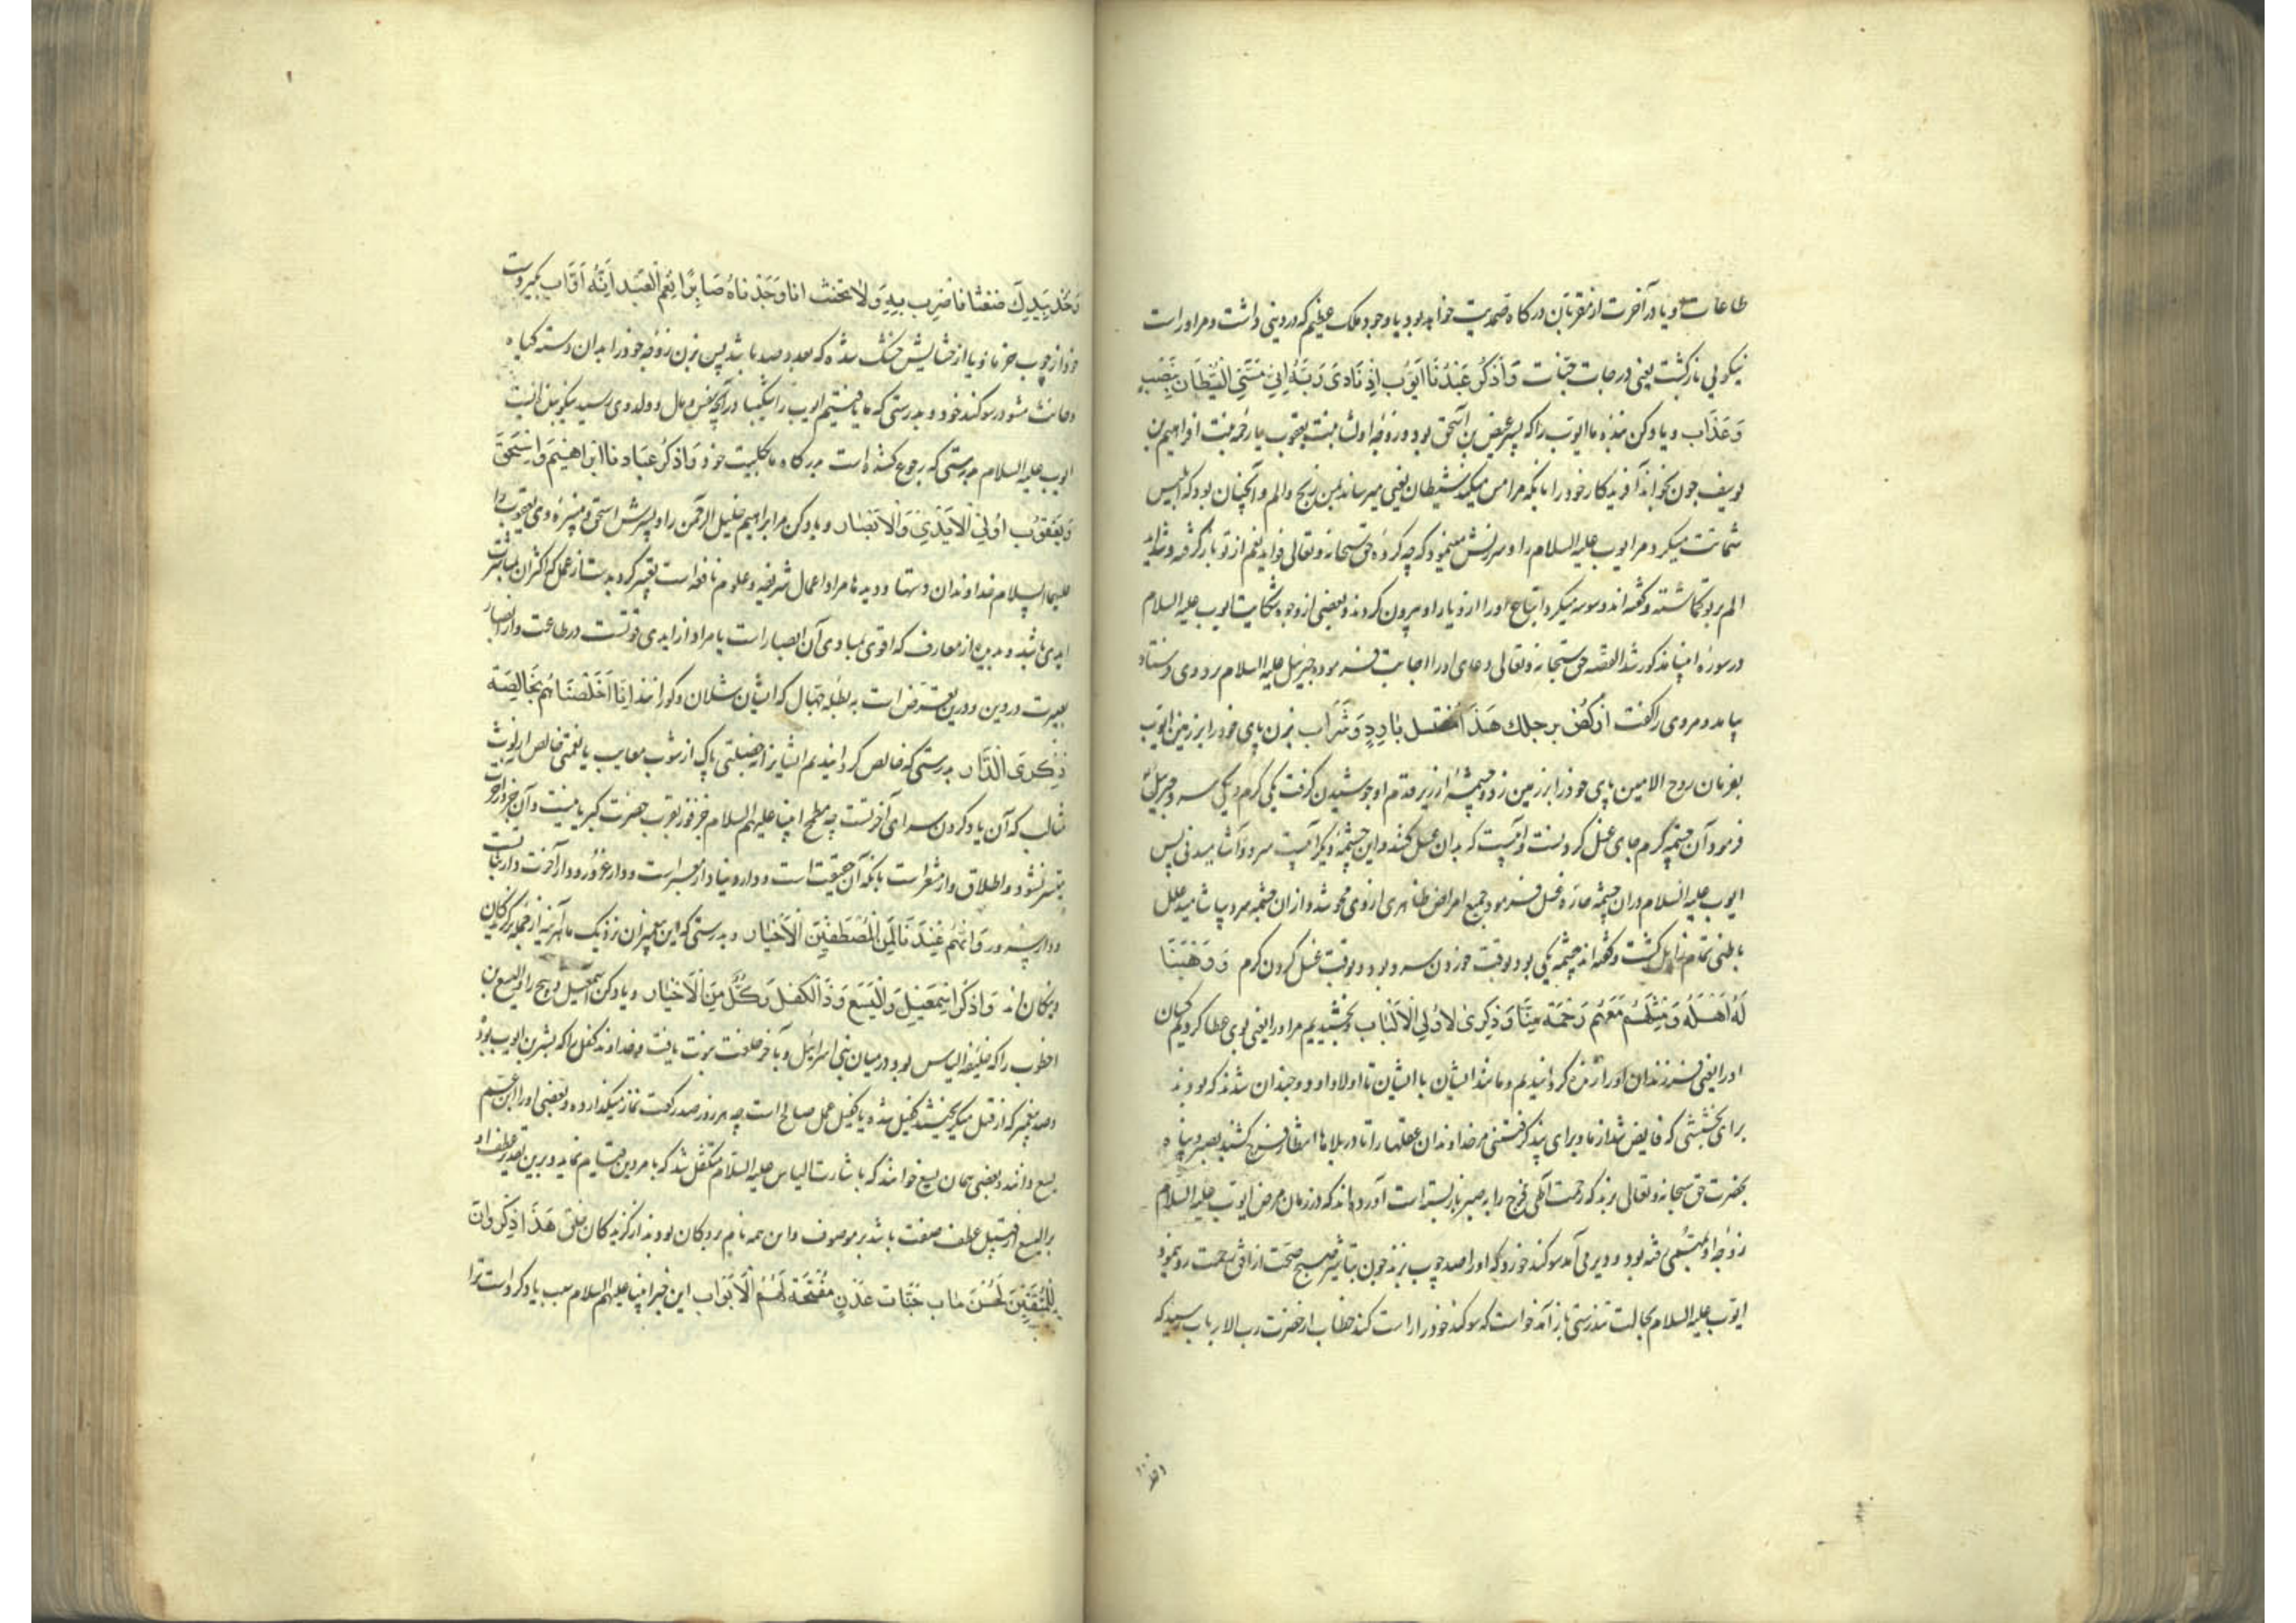 طاعات او یا در آخرت از مقربان درکاه صمدیت خواهد بود با وجود ملک عظیم که در دنیی داشت و مر او راست
نیکویی بازکشت یعنی درجات جنّات وَاذْكُرْ عَبْدَنَا اَيُّوبَ اِذْ نَادَى رَبَّهُ اِنِّي مَسَّنِيَ الشَّيْطَانُ بِنُصْبٍ
وَعَذَاب و یاد کن بنده ما ایوب را که پسر عیض بن اسحق بود و زوجه او لیا بنت یعقوب یا رحمه بنت افراهیم بن
یوسف چون بخواند آفریدکار خود را بانکه مرا مس میکند شیطان یعنی میرساند بمن رنج و الم و آنچنان بود که ابلیس
شماتت میکرد مر ایوب علیه السلام را و سرزنش مینمود که چه کردهٔ حق سبحانه و تعالی فواید نعم از تو باز کرفته و شداید
الم بر تو کماشته و کفته اند وسوسه میکرد اتباع او را از دیار او بیرون کردند و بعضی از وجوه شکایت ایوب علیه السلام
در سورهٔ انبیا مذکور شد القصّه حق سبحانه و تعالی دعای او را اجابت فرموده جبرئیل علیه السلام بر وی فرستاد
بیامد و مر وی را کفت اركض برجلك هَذَا مُغْتسل بَارِدٌ وَشَرَاب بزن پای خود را بر زمین ایوب
بفرمان روح الامین پای خود را بر زمین زد و چشمهٔ از زیر قدم او جوشیدن کرفت یکی کرم و یکی سرد جبرئیل
فرمود آن چشمه کرم جای غسل کردنست و آبیست که بدان غسل کنند و این چشمهٔ دیکر آبیست سرد و آشامیدنی پس
ایوب علیه السلام دران چشمه حارّه غسل فرمود جمیع امراض ظاهری از وی محو شد و ازان چشمه سرد بیاشامید علل
باطنی تمام زایل کشت و کفته اند چشمه یکی بود بوقت خوردن سرد بود و بوقت غسل کردن کرم وَوَهَبْنَا
لَهُ اَهْلَهُ وَمِثْلَهُمْ مَعَهُمْ رَحْمَةً مِنَّا وَذِكْرَى لِاُولِي الْاَلْبَابِ و بخشیدیم مر او را یعنی بوی عطا کردیم کسان
او را یعنی فرزندان او را زنده کردانیدیم و مانند ایشان با ایشان تا اولاد او دو چندان شدند که بودند
برای بخششی که فایض شد از ما و برای پند کرفتنی مر خداوندان عقلها را تا در بلاها انتظار فرج کشند بصبر و پناه
بحضرت حق سبحانه و تعالی برند که رحمت الهی فرج را بر صبر باز بسته است آورده اند که در زمان مرض ایوب علیه السّلام
زوجه او بمهمّی رفته بود و دیر می آمد سوکند خورد که او را صد چوب بزند چون تباشیر صبح صحت از افق رحمت رو نمود
ایوب علیه السلام بحالت تندرستی باز آمد خواست که سوکند خود را راست کند خطاب از حضرت رب الارباب رسید که
وَخُذْ بِيَدِكَ ضِغْثًا فَاضْرِبْ بِهِ وَلَا تَحْنَثْ انا وَجَدْنَاهُ صَابِرًا نِعْمَ الْعَبْدُ اِنَّهُ اَوَّاب بکیر بدست
خود از چوب خرما و یا از حشایش خشک شده که بعدد صد باشد پس بزن زوجه خود را بدان دسته کیاه
و حانث مشو در سوکند خود و بدرستی که ما یافتیم ایوب را شکیبا در آنچه بنفس و مال و ولد وی رسید نیکو بنده ایست
ایوب علیه السلام بدرستی که رجوع کننده است بدرکاه ما بکلیت خود وَاذْكُرْ عِبَادَنَا اِبْرَاهِيْمَ وَاِسْحَقَ
وَيَعْقُوبَ اُولِي الْاَيْدِيْ وَالْاَبْصَار و یاد کن مر ابراهیم خلیل الرحمن را و پسرش اسحق و پسرزهٔ وی یعقوب را
علیهما السلام خداوندان دستها و دیدها مراد اعمال شریفه و علوم نافعه است تعبیر کرد بدست از عمل که اکثران بمباشرت
ایدی باشد و بدیده از معارف که اقوی مبادی آن ابصار است یا مراد از ایدی قوتست در طاعت و از ابصار
بصیرت در دین و درین تعرّض است به بطلهٔ جهال که ایشان شلان و کورانند اِنَّا اَخْلَصْنَاهُمْ بِخَالِصَةٍ
ذِكْرَى الدَّار بدرستی که خالص کردانیدیم ایشانرا بخصلتی پاک از شوب معایب یا نعمتی خالص از لوث
مثالب که آن یاد کردن سرای آخرتست چه مطمح انبیا علیهم السلام جز فوز بقرب حضرت کبریا نیست و آن جز در آخرت
میسر نشود و اطلاق دار مشعر است بانکه آن حقیقت است و دار دنیا دار معبر است و دار غرور و دار آخرت دار ثبات
و دار سرور وَاِنَّهُمْ عِنْدَنَا لَمِنَ الْمُصْطَفَيْنَ الْاَخْيَار و بدرستی که این پیغمبران نزدیک ما هر آینه از جمله برکزیدکان
و نیکان اند وَاذْكُرْ اِسْمَعِيْلَ وَالْيَسَعَ وَذَا الْكِفْلِ وَكُلٌّ مِنَ الْاَخْيَار و یاد کن اسمعیل ذبیح را و الیسع بن
اخطوب را که خلیفه الیاس بود در میان بنی اسرائیل و بآخر خلعت نبوت یافت و خداوند کفل را که بشر بن ایوب بود
و صد پیغمبر که از قتل میکریختند کفیل شده یا کفیل عمل صالح است چه هر روز صد رکعت نماز میکذارده و بعضی او را ابن عم
یسع دانند و بعضی همان یسع خوانند که باشارت الیاس علیه السّلام متکفل شد که بامر دین قیام نماید و برین تقدیر عطف او
بر الیسع از قبیل عطف صفت باشد بر موصوف و این همه نام بردکان بودند از کزیدکان خلق هَذَا ذِكْرٌ وَاِنَّ
لِلْمُتَّقِيْنَ لَحُسْنَ مَاٰب جَنَّاتِ عَدْنٍ مُفَتَّحَةً لَهُمُ الْاَبْوَاب این خبر انبیا علیهم السلام سبب یاد کرد است ترا